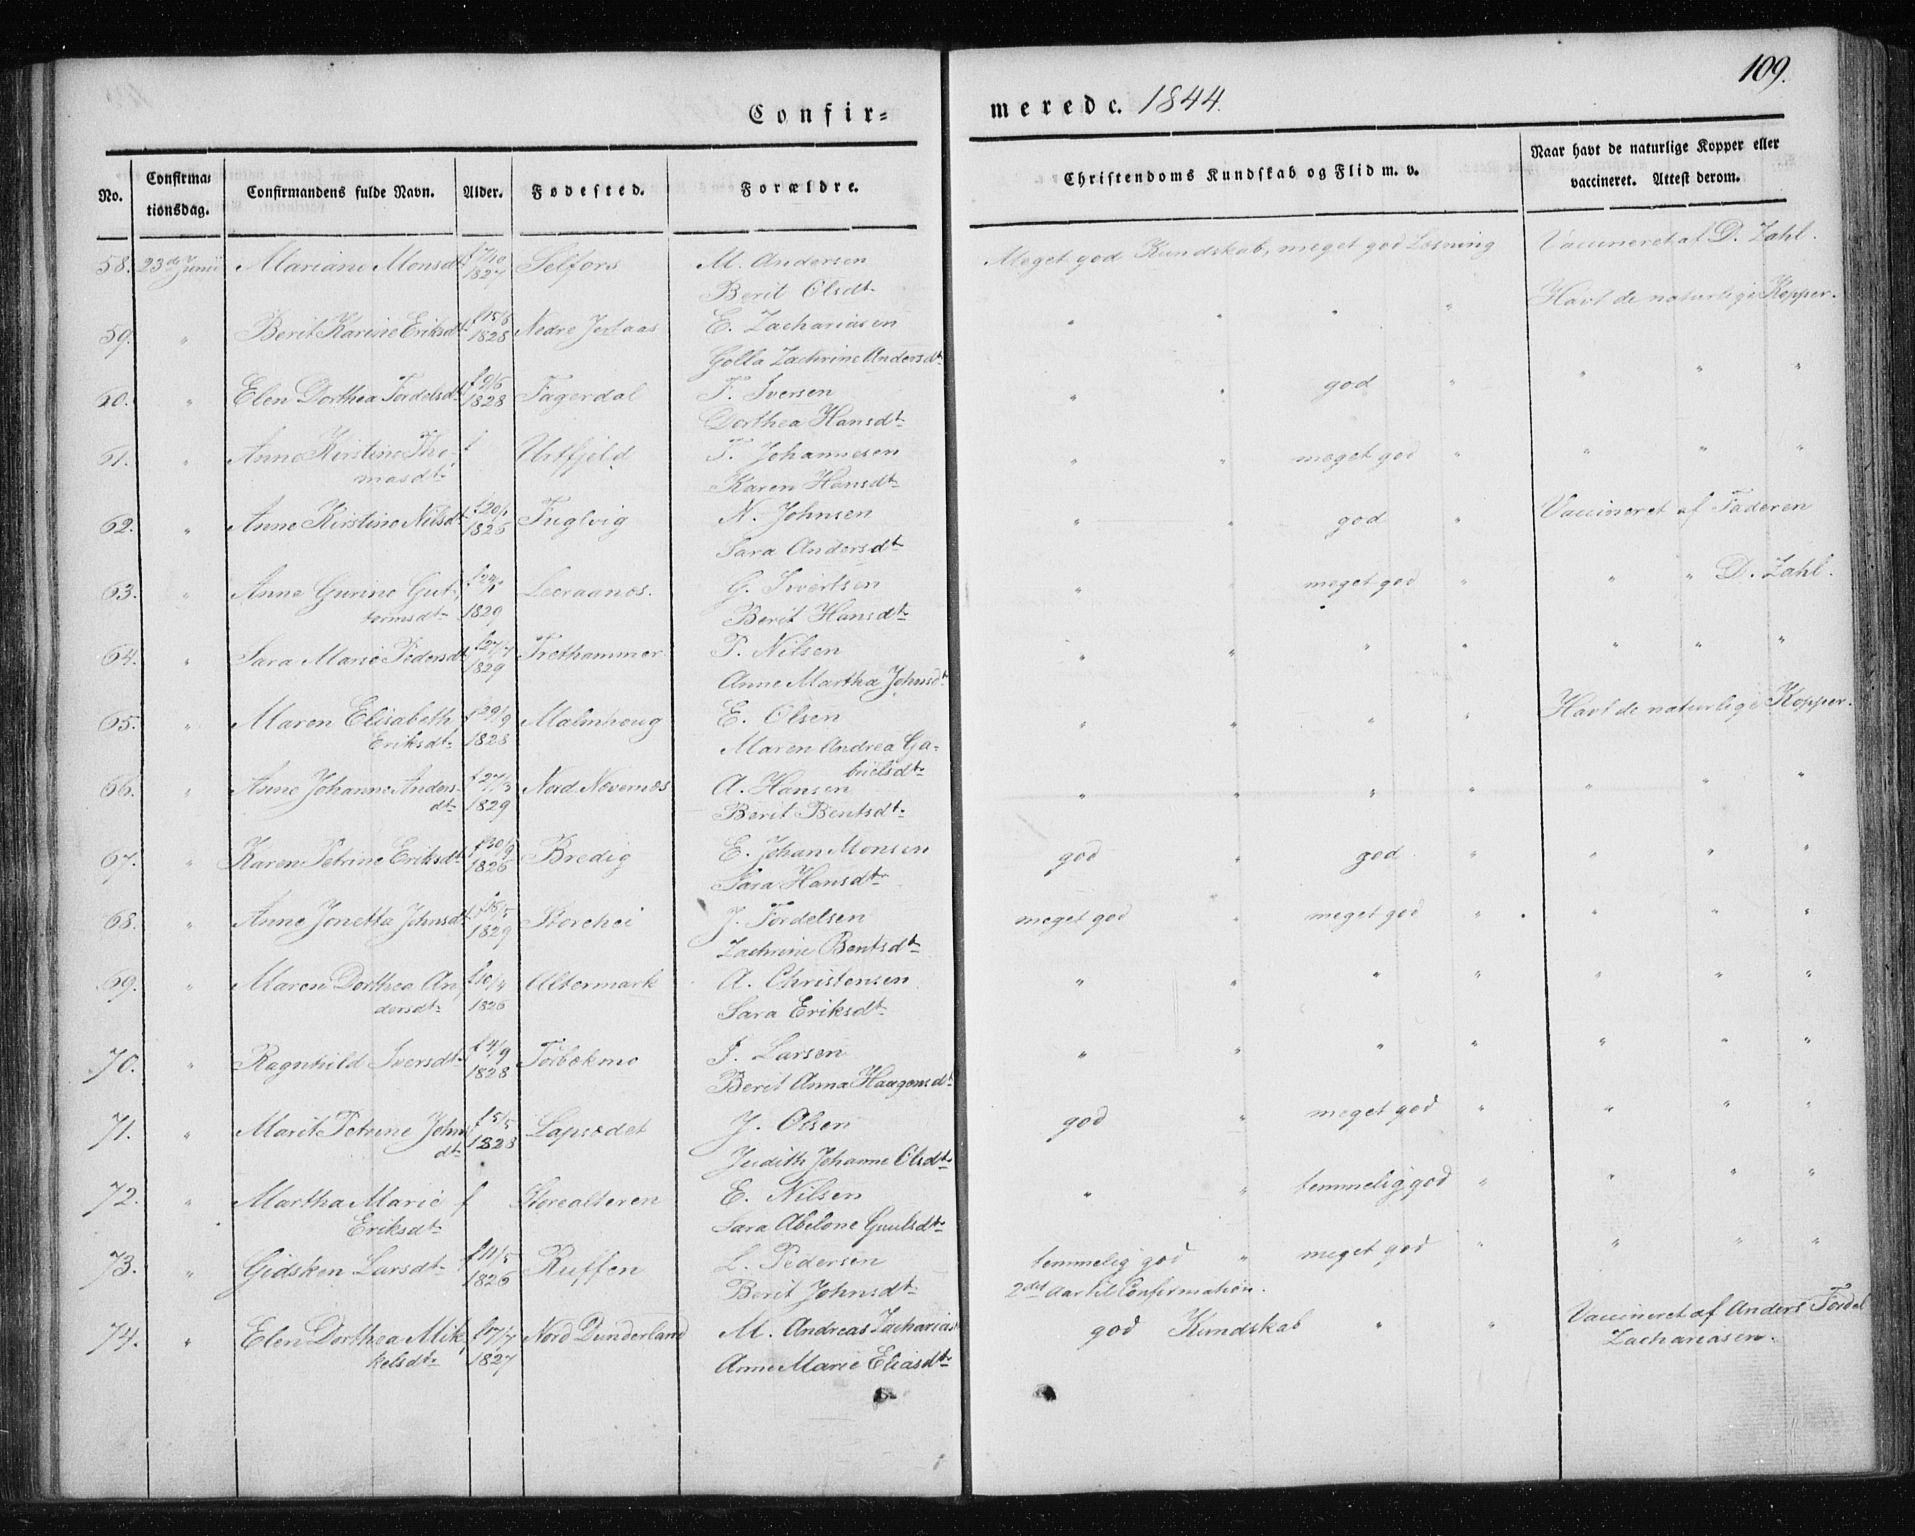 109.
Confir=
merede. 1844.
No.
Confirma:
tionsdag.
Confirmandens fulde Navn.
Alder.
Fødested.
Forældre.
Christendoms Kundskab og Flid m. v.
Naar havt de naturlige Kopper eller
vaccineret. Attest derom.
58. 23de Junii Mariane Monsdt. f 7/10 Selfors M. Andersen Meget god Kundskab, meget god Læsning Vaccineret af D. Zahl.
1827 Berit Olsdt.
59. " Berit Karine Eriksdt. f 15/6 Nedre E. Zachariasen " " " " Havt de naturlige Kopper.
1828 Golla Zachrine Andersdt.
60. " Elen Dorthea Tordelsdt. f 9/6 Fagerdal T. Iversen " " god " " " "
1828 Dorthea Hansdt.
61. " Anne Kirstine Tho- f Urtfjeld T. Johannesen " " meget god " " " "
masdt. Karen Hansdt.
62. " Anne Kirstine Nilsdt. Fuglvig N. Johnsen " " god " Vaccineret af Faderen
1826 Sara Andersdt.
63. " Anne Gurine Gut- Leeraanæs. G. Ivertsen " " meget god " " " D. Zahl.
tormsdt. 1829 Berit Hansdt.
64. " Sara Marie Pedersdt. f 27/7 Trethammer P. Nilsen " " " " " " "
1829 Anne Martha Johnsdt.
65. " Maren Elisabeth f 29/9 Malmhoug E. Olsen " " " " Havt de naturlige Kopper.
Eriksdt. 1828 Maren Andrea Ga-
brielsdt.
66. " Anne Johanne Anders- f 27/3 Nord Nævernæs A. Hansen " " " " " " "
dt. 1829 Berit Bentsdt.
67. " Karen Petrine Eriksdt. f 30/9 Bredig E. Johan Monsen god " god " " " "
1826 Sara Hansdt.
68. " Anne Jonetta Johnsdt. f 18/5 Storehei J. Tordelsen meget god " meget god " " " "
1829 Zachrine Bentsdt.
69. " Maren Dorthea An- f 10/4 Altermark A. Christensen " " " " " " "
dersdt. 1826 Sara Eriksdt.
70. " Ragnhild Iversdt. f 4/9 Torbekmo I. Larsen " " " " " " "
1828 Berit Anna Haagensdt.
71. " Marit Petrine John f 5/5 Lapsødet J. Olsen god " meget god " " " "
dt. 1828 Judith Johanne Olsdt.
72. " Martha Marie f Storealteren E. Nilsen " " temmelig god " " " "
Eriksdt. Sara Abelone Guulsdt.
73. " Gidsken Larsdt. f 11/5 Ruffen L. Pedersen temmelig god " meget god " " " "
1826 Berit Johnsdt. 2det Aar til Confirmation.
74. " Elen Dorthea Mik- f 17/7 Nord Dunderland M. Andreas Zacharias god Kundskab " " Vaccineret af Anders Tordel
kelsdt. 1827 Anne Marie Eliasdt. Zachariasen.